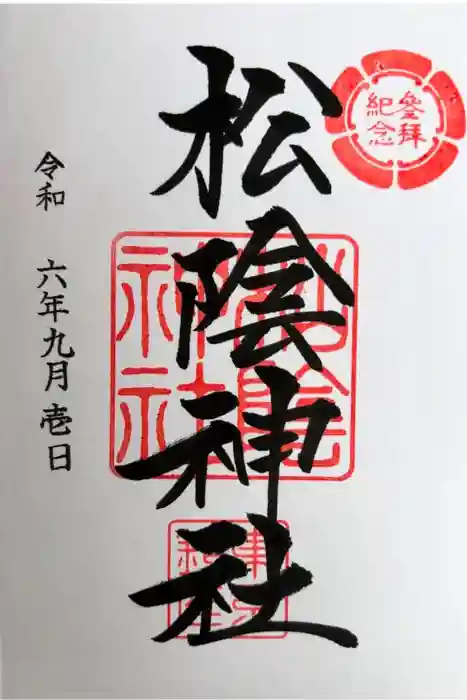 參拜
紀念
松陰神社
松陰
神社
令和 六年九月壱日